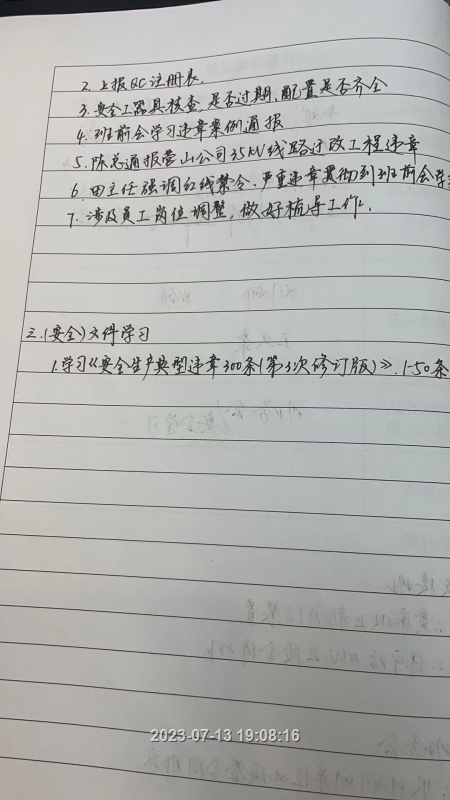 2. 上报QC注册表.
3. 安全工器具核查, 是否过期, 配置是否齐全
4. 班前会学习违章案例通报
5. 陈总通报营山公司35kV线路迁改工程违章
6. 田主任强调红线禁令、严重违章贯彻到班前会学
7. 涉及员工岗位调整, 做好梳导工作.
三. (安全) 文件学习
1. 学习《安全生产典型违章300条(第3次修订版)》. 1-50条
2023-07-13 19:08:16